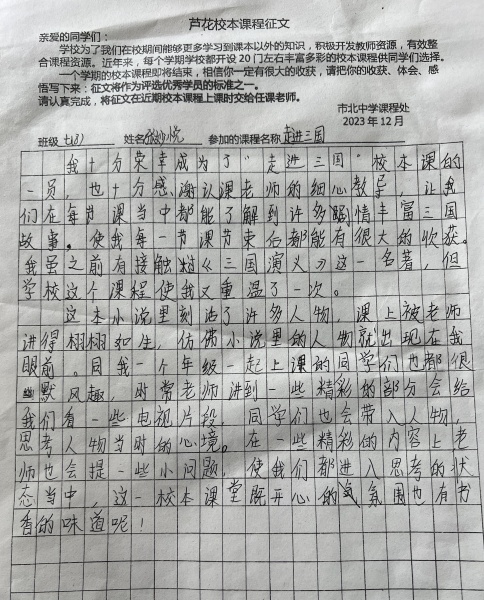 芦花校本课程征文
亲爱的同学们：
学校为了我们在校期间能够更多学习到课本以外的知识，积极开发教师资源，有效整
合课程资源。近年来，每个学期学校都开设20门左右丰富多彩的校本课程供同学们选择。
一个学期的校本课程即将结束，相信你一定有很大的收获，请把你的收获、体会、感
悟写下来：征文将作为评选优秀学员的标准之一。
请认真完成，将征文在近期校本课程上课时交给任课老师。
市北中学课程处
2023年12月
班级 七(8) 姓名 悦 参加的课程名称 走进三国
我十分荣幸成为了“走进三国”校本课的
一员，也十分感谢认课老师的细心教导，让我
们在每节课当中都能了解到许多剧情丰富三国
故事。使我每一节课节束后都能有很大的收获。
我虽之前有接触过《三国演义》这一名著，但
学校这个课程使我又重温了一次。
这本小说里刻活了许多人物，课上被老师
讲得栩栩如生，仿佛小说里的人物就出现在我
眼前。同我一个年级一起上课的同学们也都很
幽默风趣，时常老师讲到一些精彩的部分会给
我们看一些电视片段，同学们也会带入人物，
思考人物当时的心境。在一些精彩的内容上老
师也会提一些小问题，使我们都进入思考的状
态当中，这一校本课堂既开心的氛围也有书
香的味道呢！